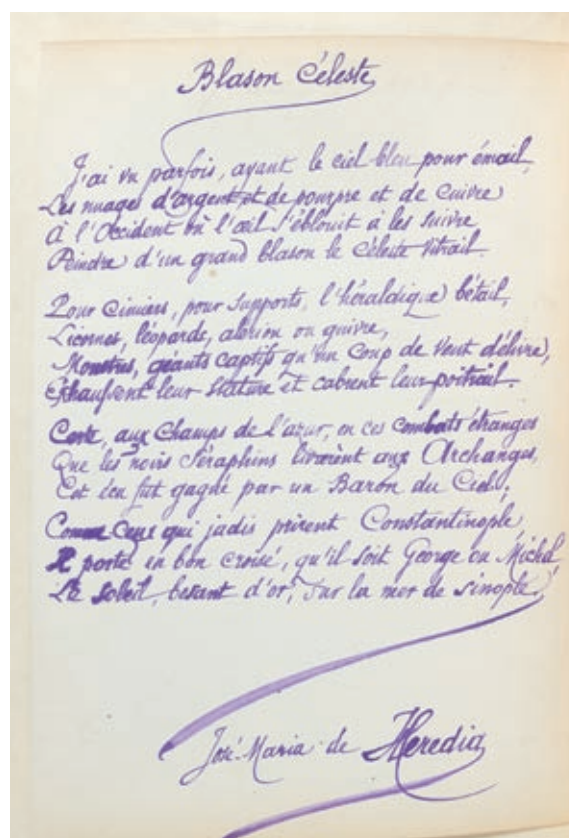 Blason Céleste
J'ai vu parfois, ayant le ciel bleu pour émail,
Les nuages d'argent et de pourpre et de cuivre
À l'Occident où l'œil s'éblouit à les suivre
Peindre d'un grand blason le céleste vitrail.
Pour cimiers, pour supports, l'héraldique bétail,
Licornes, léopards, alérion ou guivre,
Monstres, géants captifs qu'un coup de vent délivre,
Exhaussent leur stature et cabrent leur poitrail.
Certe, aux champs de l'azur, en ces combats étranges
Que les noirs Séraphins livrèrent aux Archanges,
Cet écu fut gagné par un Baron du Ciel;
Comme ceux qui jadis prirent Constantinople,
Il porte en bon croisé, qu'il soit George ou Michel,
Le soleil, besant d'or, sur la mer de sinople.
José-Maria de Heredia